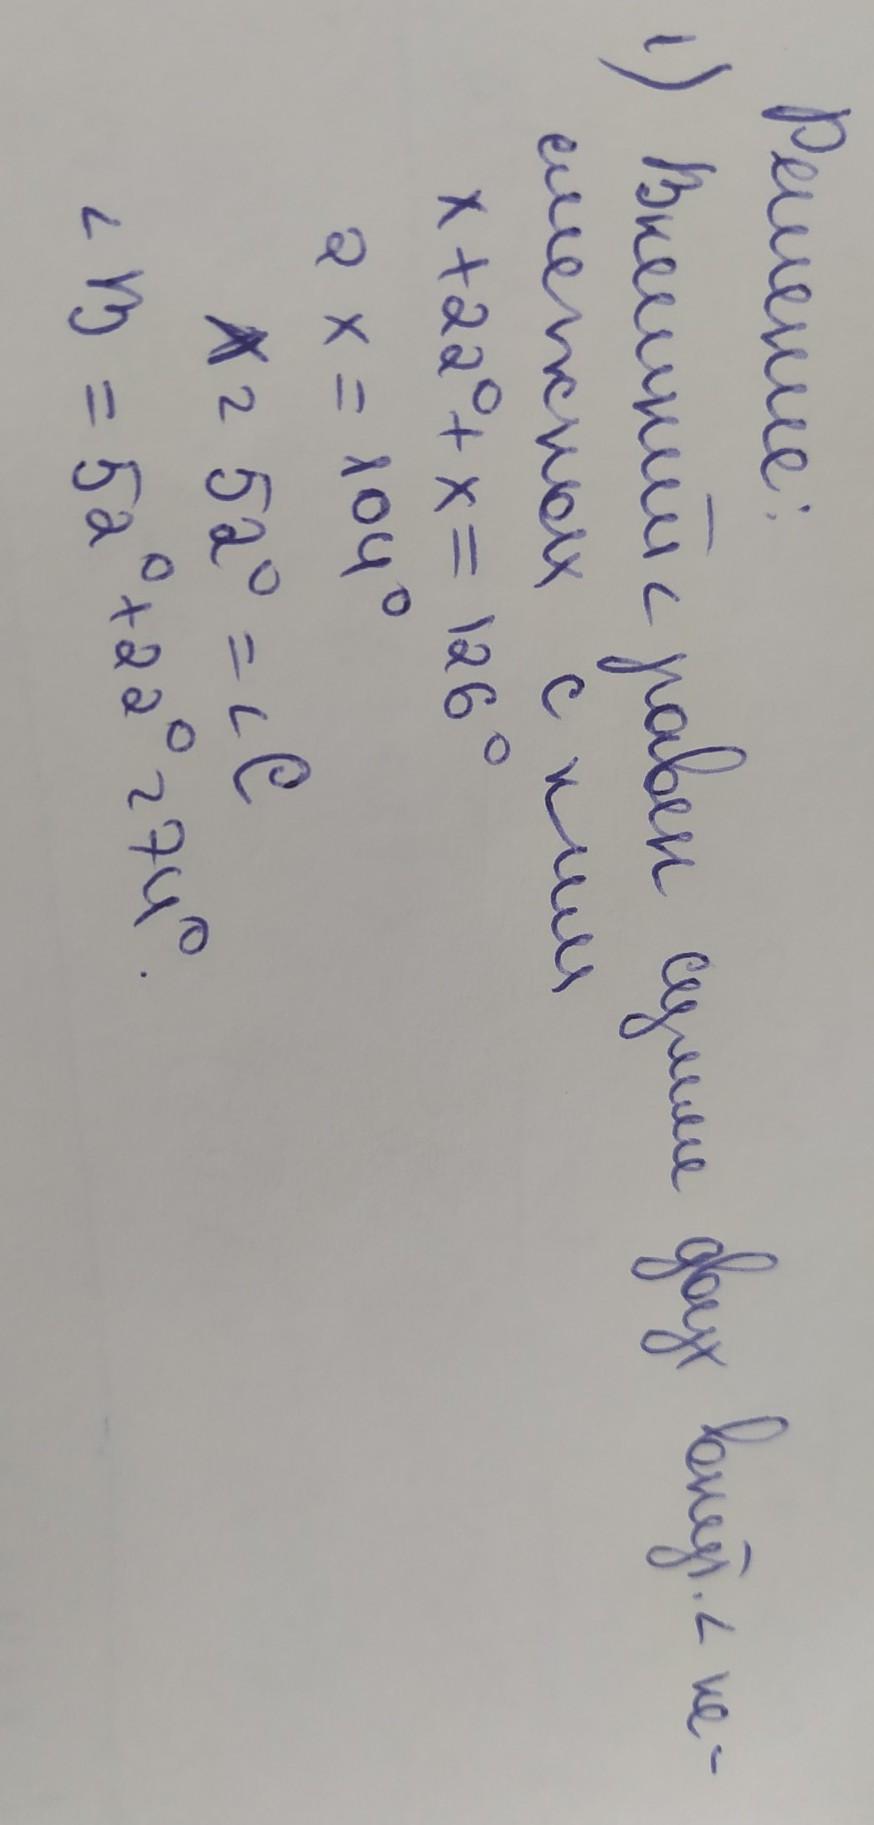 Решение:
1) Внешний < равен сумме двух внутр. < не-
смежных с ним
x + 22° + x = 126°
2 x = 104°
x = 52° = < C
< B = 52° + 22° = 74°.